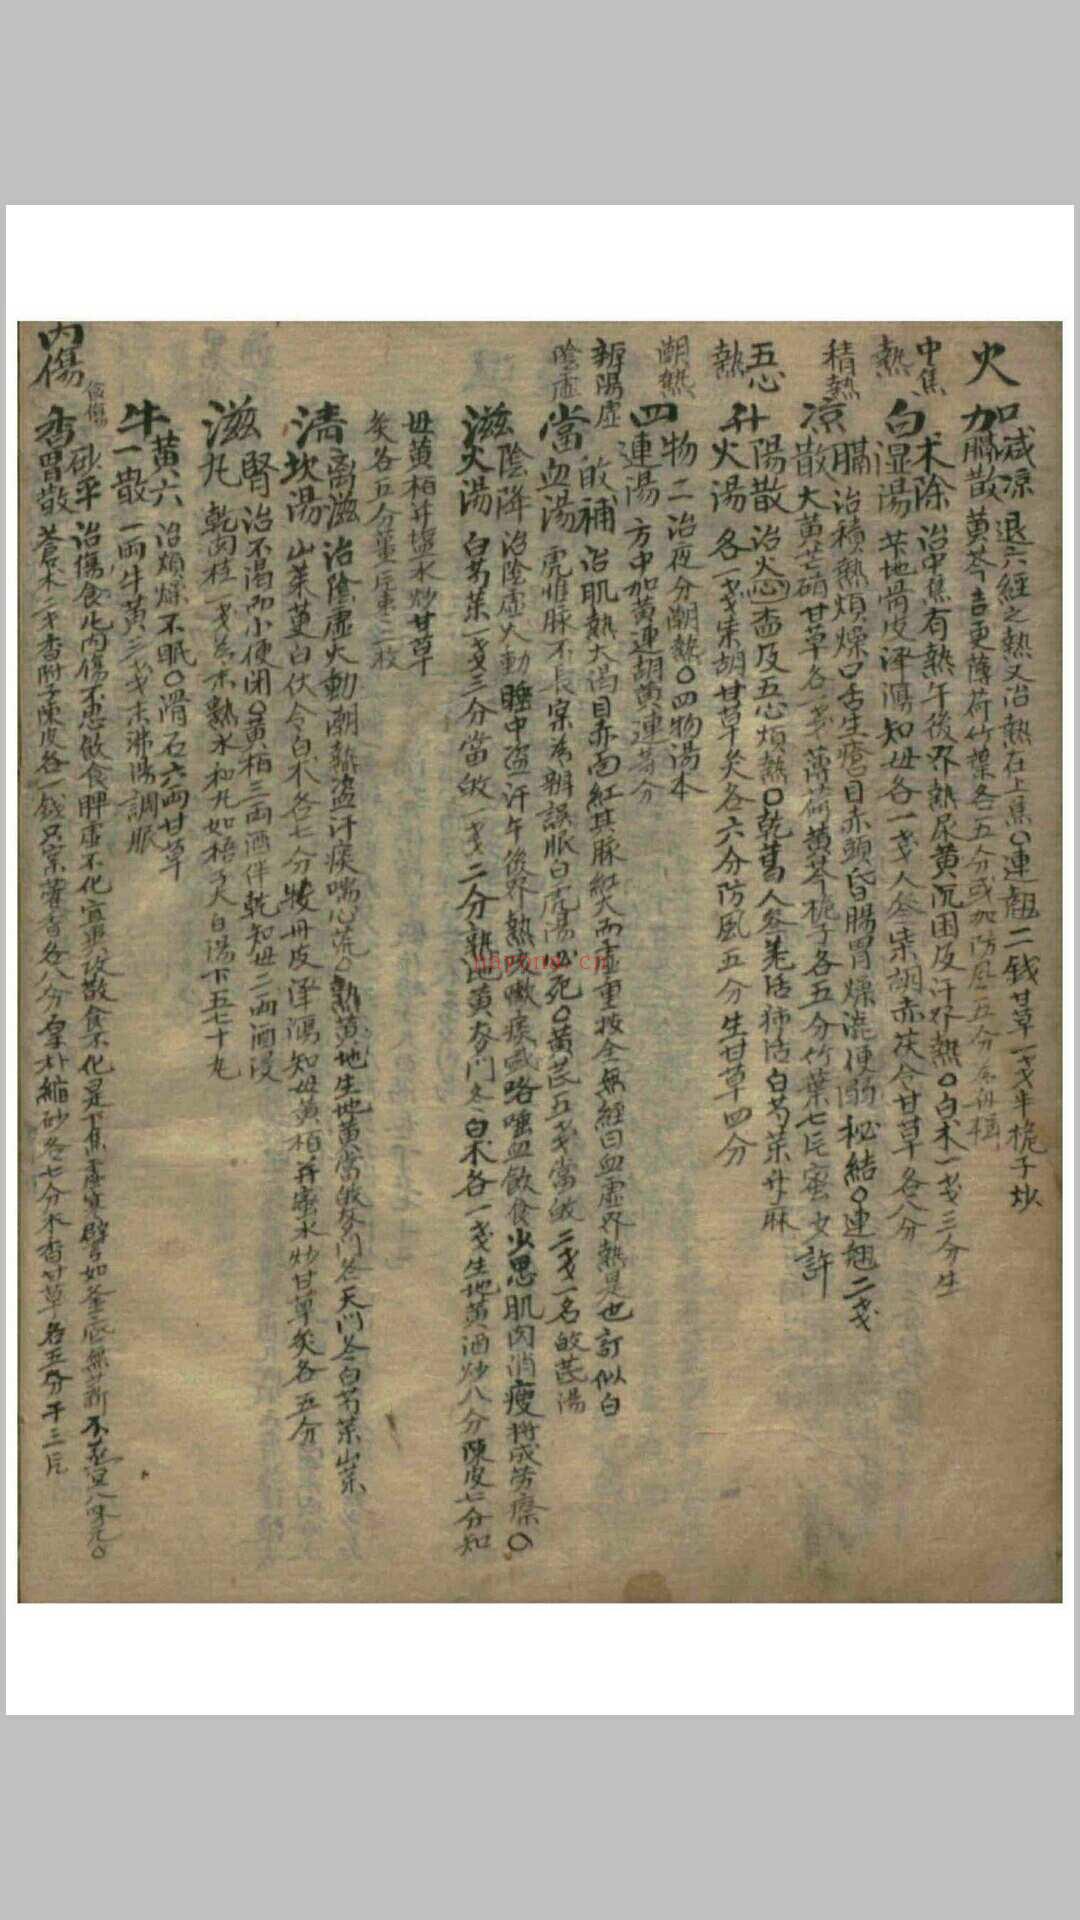 火
加減凉膈散 退六經之熱又治熱在上焦○連翹二钱甘草一戔半梔子炒
黄芩吉更薄荷竹葉各五分或加防風五分
中焦熱
白术除湿湯 治中焦有熱午後界熱尿黄沉困及汗界熱○白术一戔三分生
芐地骨皮泽瀉知母各一戔人参柴胡赤茯令甘草各八分
積熱
凉膈散 治積熱煩燥口舌生瘡目赤頭昏腸胃燥澁便溺秘結○連翹二戔
大黄芒硝甘草各一戔薄荷黄芩梔子各五分竹葉七片蜜少許
五心熱
升陽散火湯 治火盃及五心煩熱○乾葛人參羌活獨活白芍薬升麻
各一戔柴胡甘草炙各六分防風五分生甘草四分
潮熱
四物二連湯 治夜分潮熱○四物湯本
方中加黄連胡黄連等分
辨陽虛陰虛
當皈補血湯 治肌熱大渴目赤面紅其脉紅大而虛重按全無經曰血虛界熱是也訂似白
虎惟脉不長宲為辨誤服白虎湯必死○黄芪五戔當皈二戔一名皈芪湯
滋陰降火湯 治陰虛火動睡中盗汗午後界熱咳嗽痰盛咯唾血飲食少思肌肉消瘦将成劳瘵○
白芍薬一戔三分當皈一戔二分熟地黄麦門冬白术各一戔生地黄酒炒八分陳皮七分知
母黄栢并塩水炒甘草
炙各五分薑片枣二枚
清離滋坎湯 治陰虛火動潮熱盗汗痰喘心荒○熟黄地生地黄當皈麦門冬天門冬白芍薬山薬
山茱萸白伏令白术各七分牧丹皮泽瀉知母黄栢并蜜水炒甘草炙各五分
滋腎丸 治不渴而小便闭○黄栢三両酒伴乾知母二両酒浸
乾肉桂一戔為末熟水和丸如梧子大白湯下五七十丸
牛黄六一散 治煩燥不眠○滑石六両甘草
一両牛黄二戔末沸湯調服
内傷
食傷
香砂平胃散 治傷食凡内傷不思飲食脾虛不化宜
蒼术二戔香附子陳皮各一钱只宲藿香各八分厚朴縮砂各七分木香甘草各五分干三片
nhyong.cn